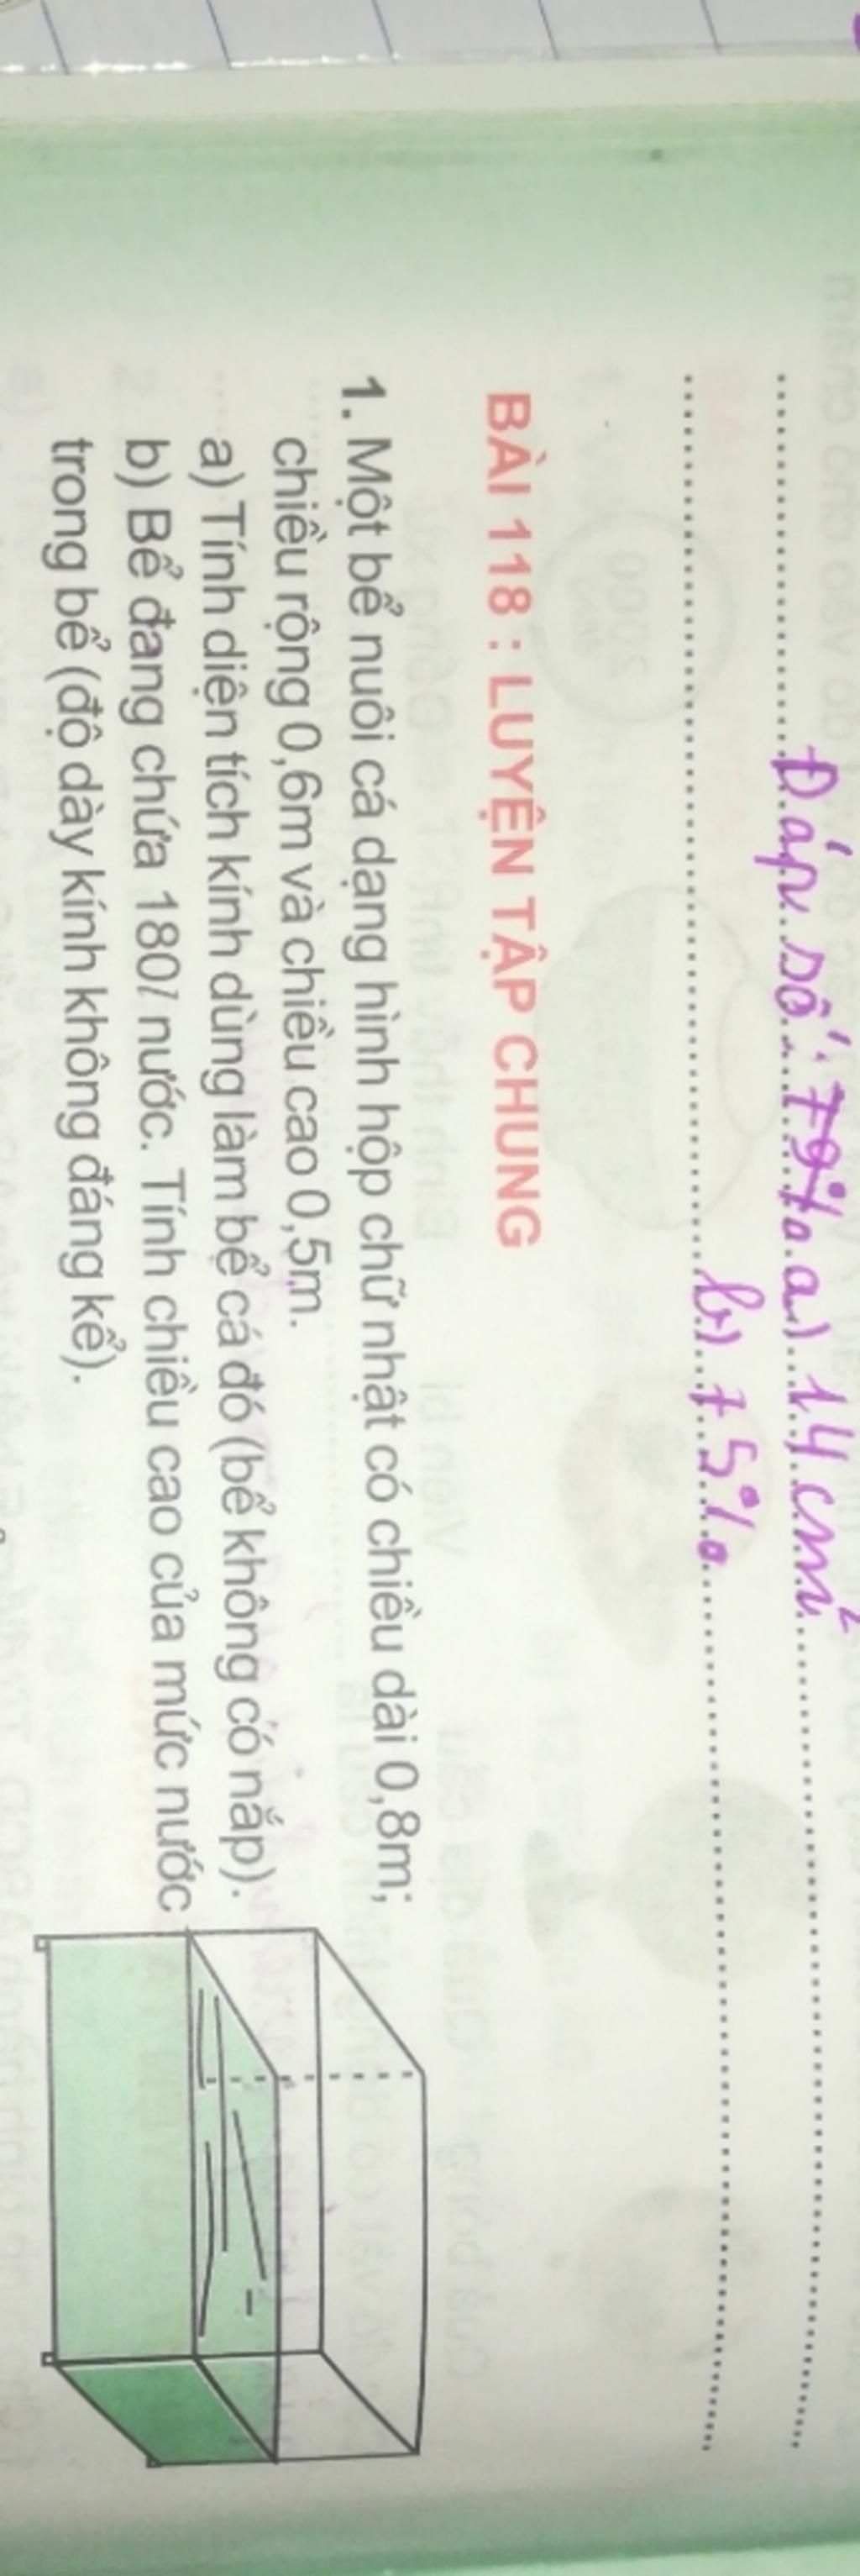 Đáp số: 79% a) 14 cm²
b) 75%
BÀI 118 : LUYỆN TẬP CHUNG
1. Một bể nuôi cá dạng hình hộp chữ nhật có chiều dài 0,8m;
chiều rộng 0,6m và chiều cao 0,5m.
a) Tính diện tích kính dùng làm bể cá đó (bể không có nắp).
b) Bể đang chứa 180l nước. Tính chiều cao của mức nước
trong bể (độ dày kính không đáng kể).